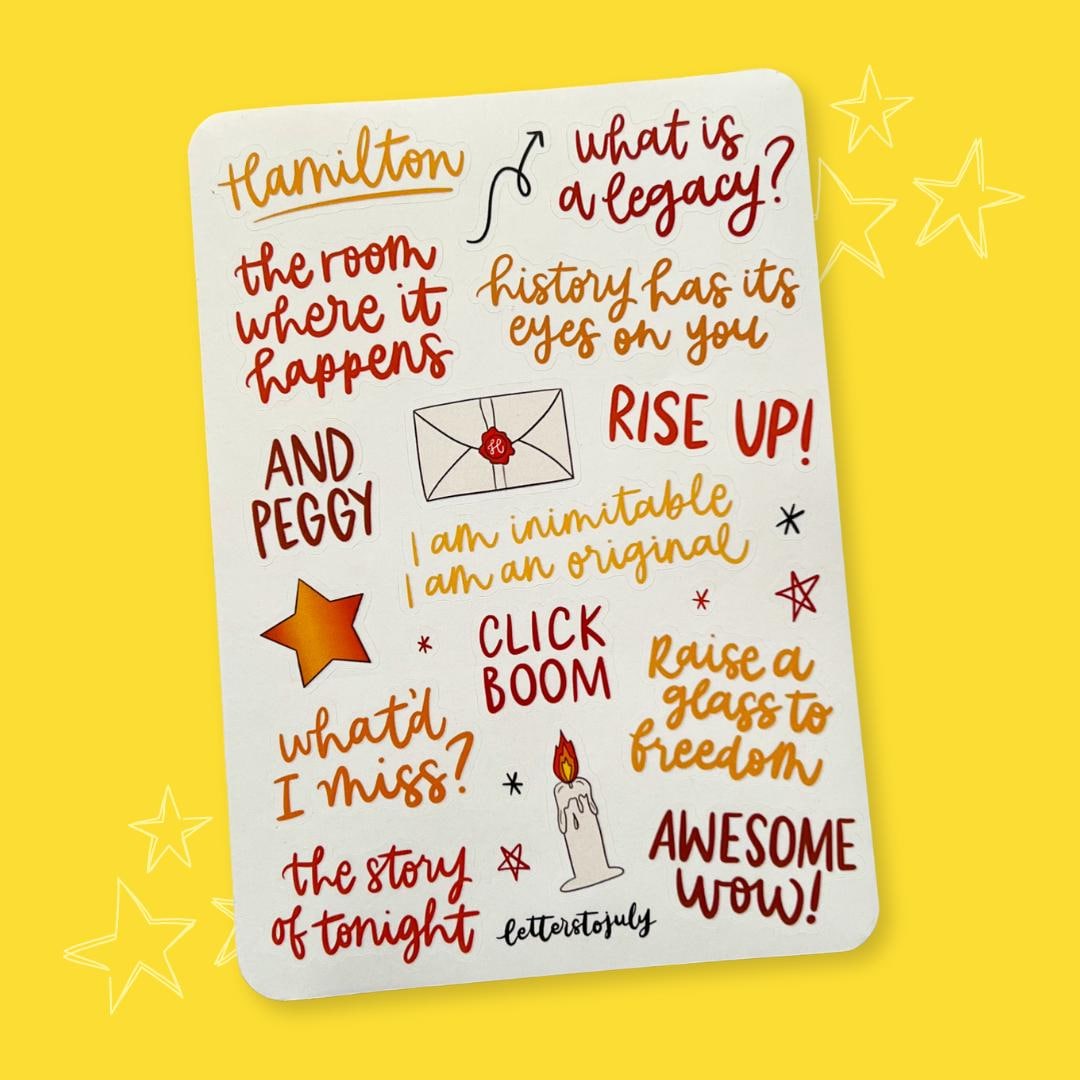 Hamilton
what is
a legacy?
the room
where it
happens
history has its
eyes on you
RISE UP!
AND
PEGGY
H
I am inimitable
I am an original
CLICK
BOOM
Raise a
glass to
freedom
what'd
I miss?
AWESOME
WOW!
the story
of tonight
letterstojuly